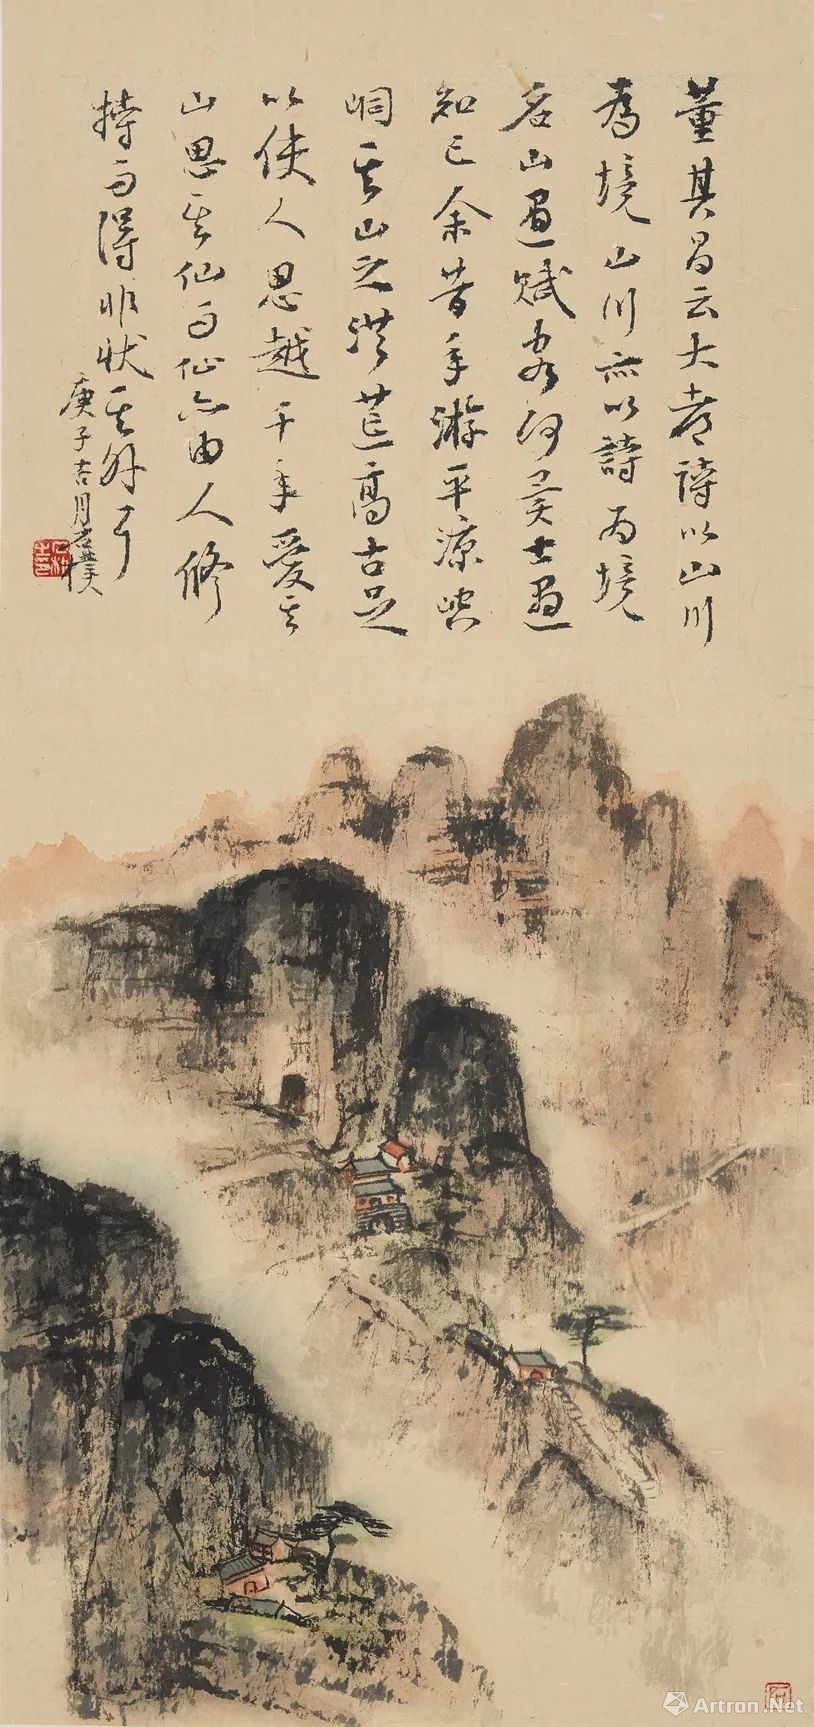 董其昌云大都诗以山川
為境山川亦以詩為境
名山遇賦客何異士遇
知己余昔年游平凉崆
峒其山之洪荒高古足
以使人思越千年愛其
山思其仙而仙亦由人修
持而得非状其外耳
庚子吉月老樸
Artron.Net